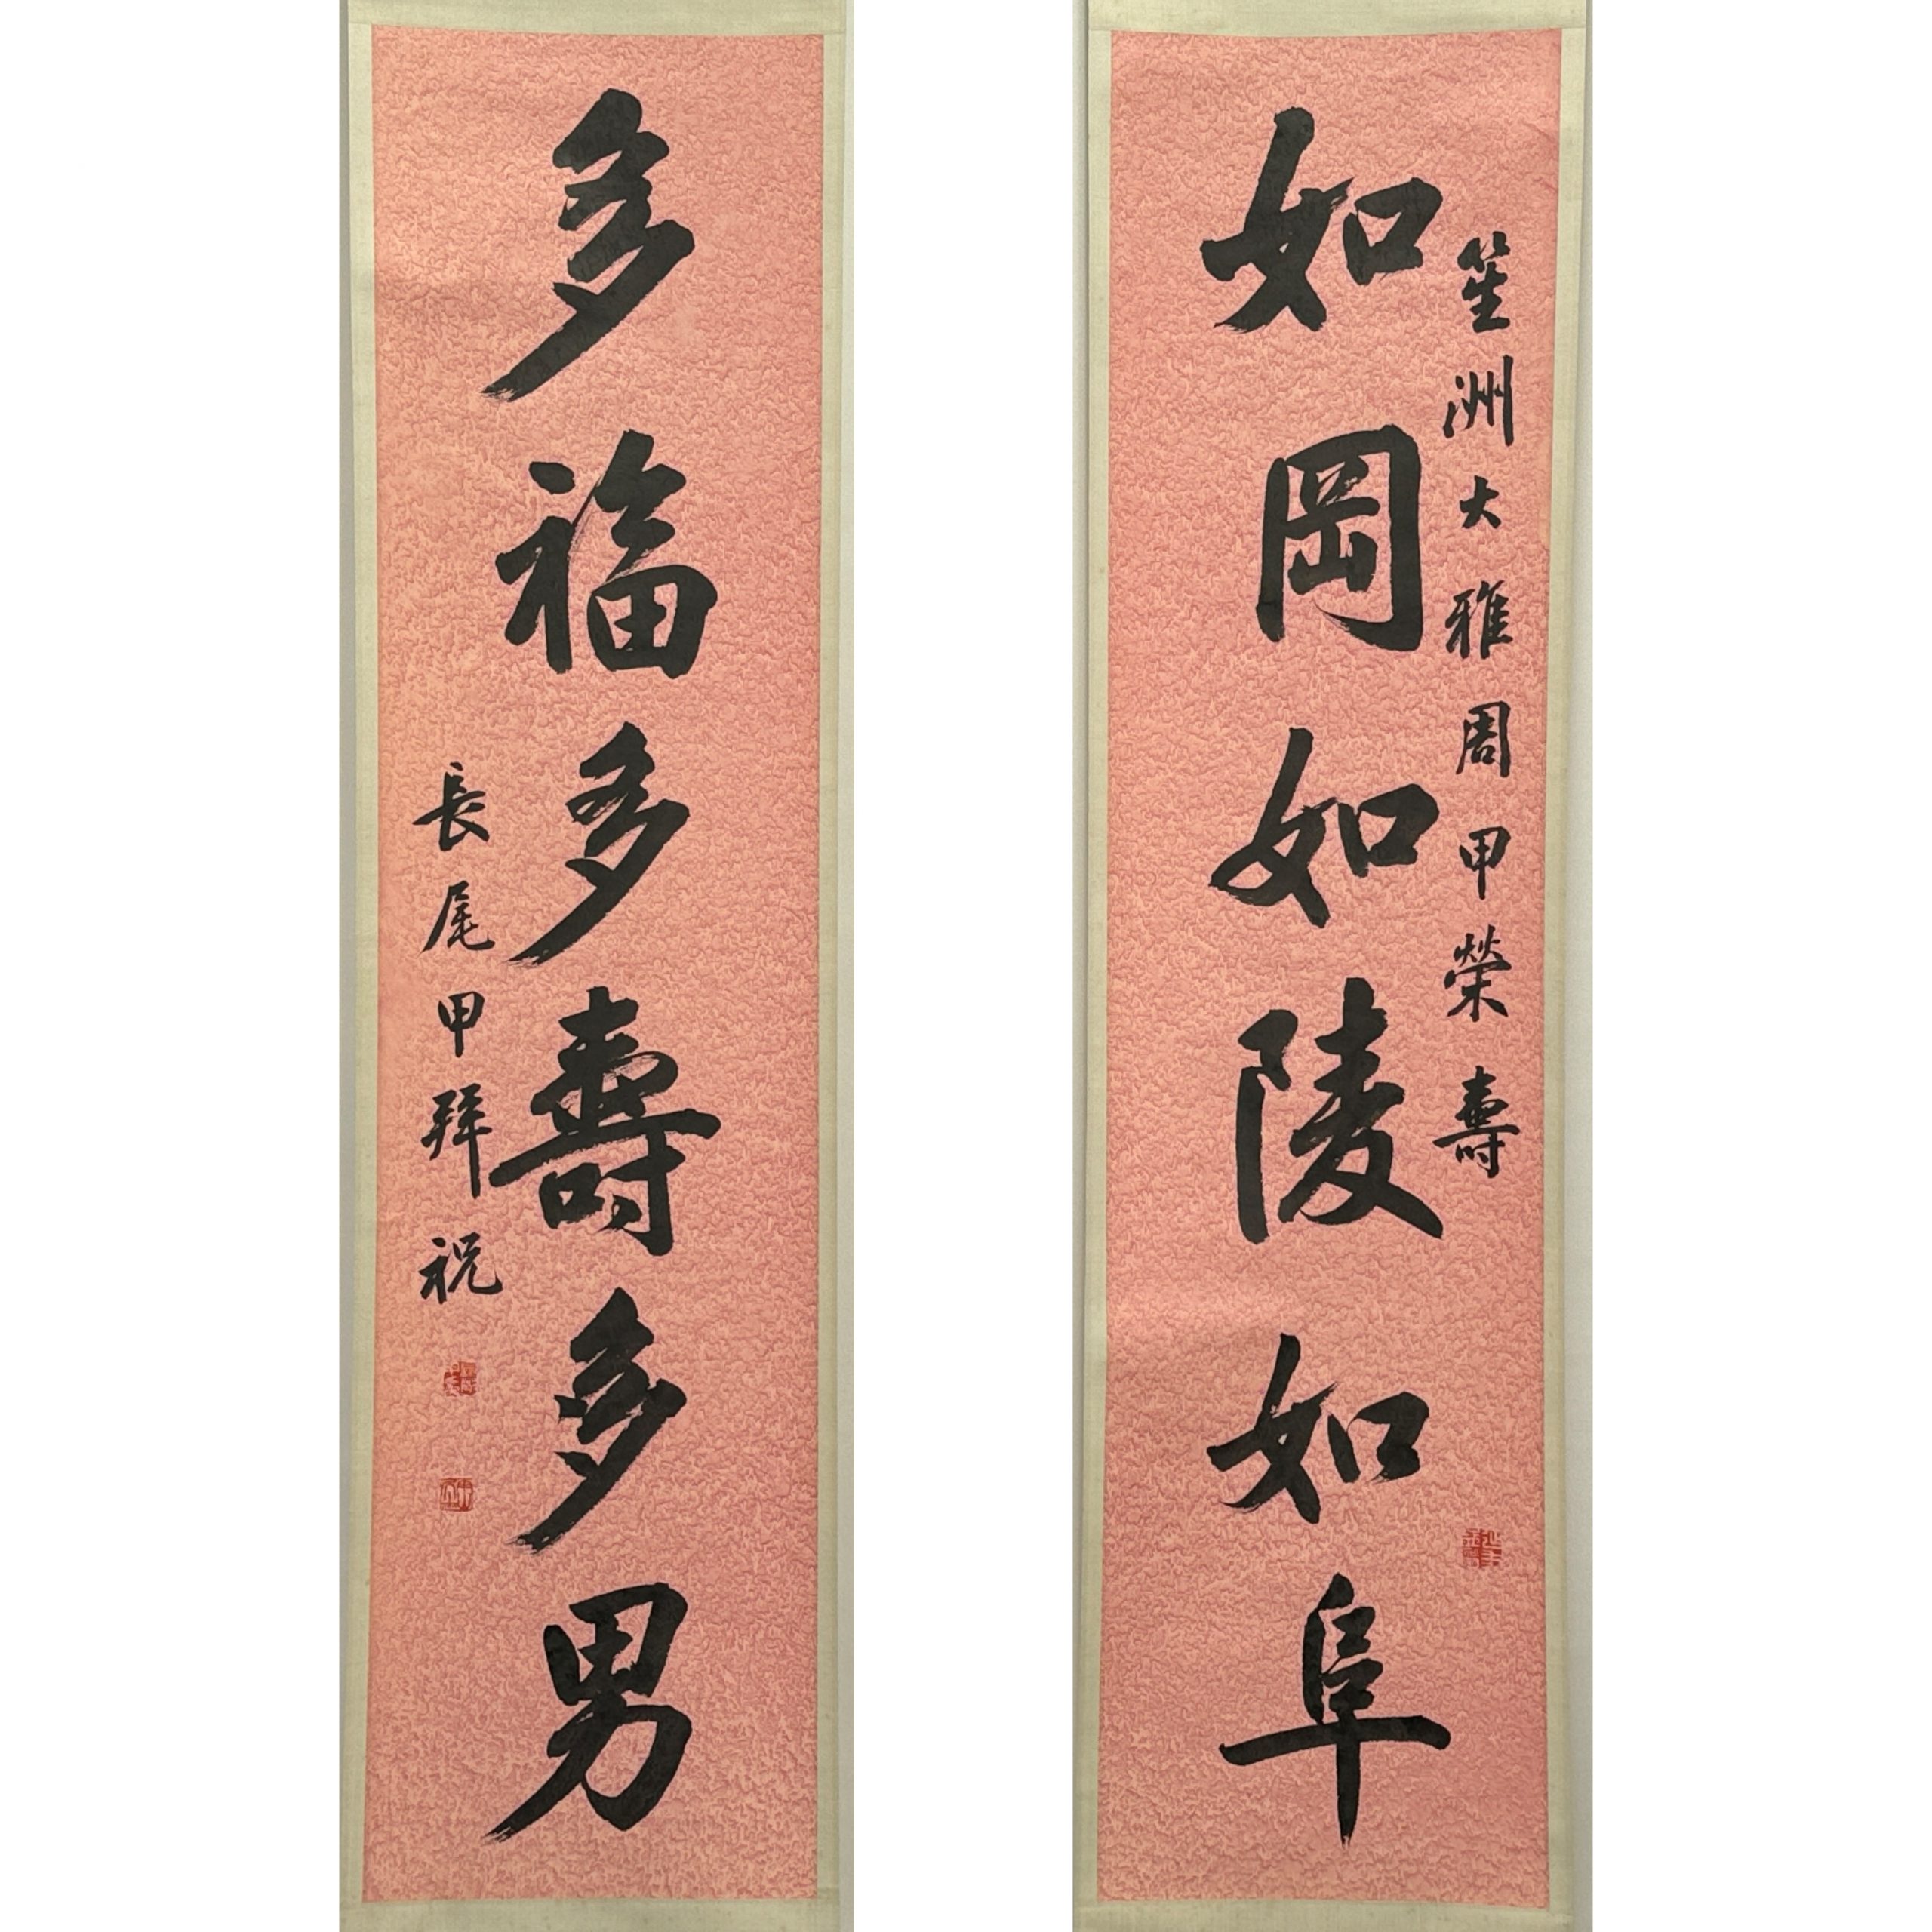 笙洲大雅周甲榮壽
如岡如陵如阜
多福多壽多男
長尾甲拜祝